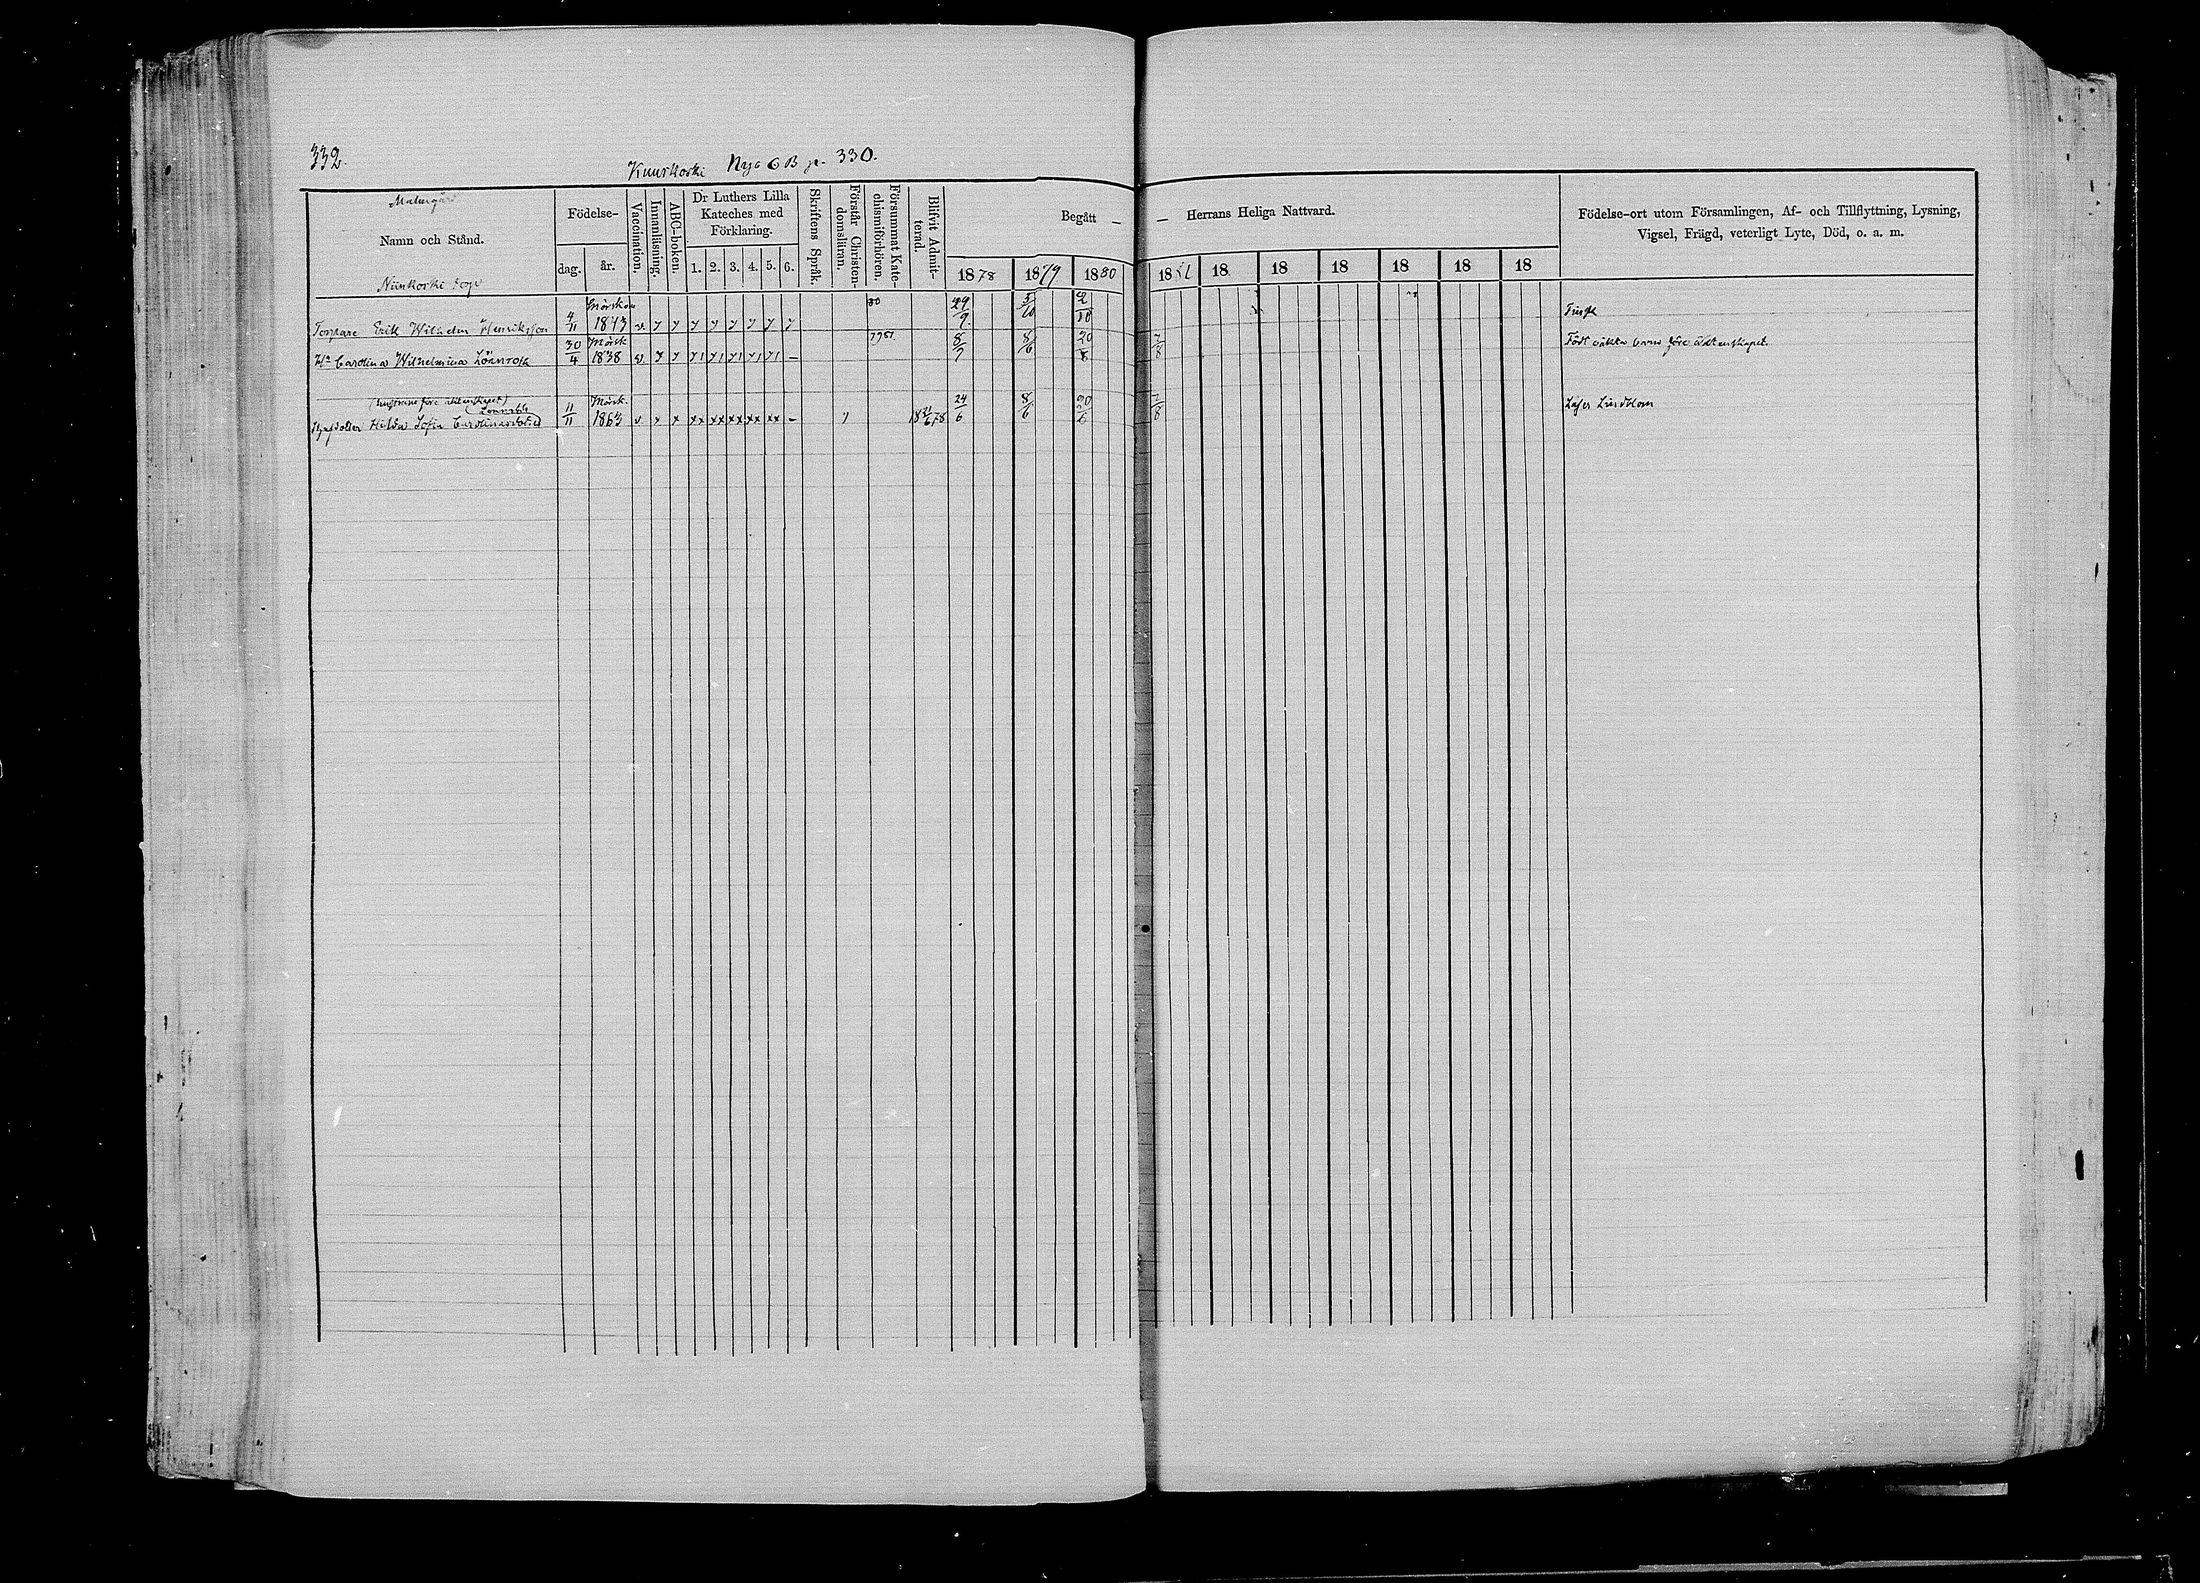 332.
Kuuskoski Nya CB p. 330.
Malmgård
Namn och Stånd.
Niinkoski torp
Födelse-
dag.
år.
Vaccination.
Innanläsning.
ABC-boken.
Dr Luthers Lilla
Kateches med
Förklaring.
1. 2. 3. 4. 5. 6.
Skriftens Språk.
Förstår Christen-
domsläran.
Försummat Kate-
chismiförhören.
Blifvit Admit-
terad.
Begått —
— Herrans Heliga Nattvard.
1878 1879 1880 1881 18 18 18 18 18 18
Födelse-ort utom Församlingen, Af- och Tillflyttning, Lysning,
Vigsel, Frägd, veterligt Lyte, Död, o. a. m.
Mörskom
Torpare Erik Wilhelm Henriksson 4/11 1843 v y y y y y y y y 80 29/9 5/10 2/10
Mörsk
H:a Carolina Wilhelmina Lönnroth 30/4 1838 v y y y1 y1 y1 y1 y1 – 8/9 8/6 20/6 7/8 Födt oäkta barn före äktenskapet.
(hustruns före äktenskapet)
Lönnroth
Mörsk.
Hilda Sofia 11/11 1863 v x x xx xx xx xx xx – 1 24/6 8/6 20/6 7/8 Läser Lindblom